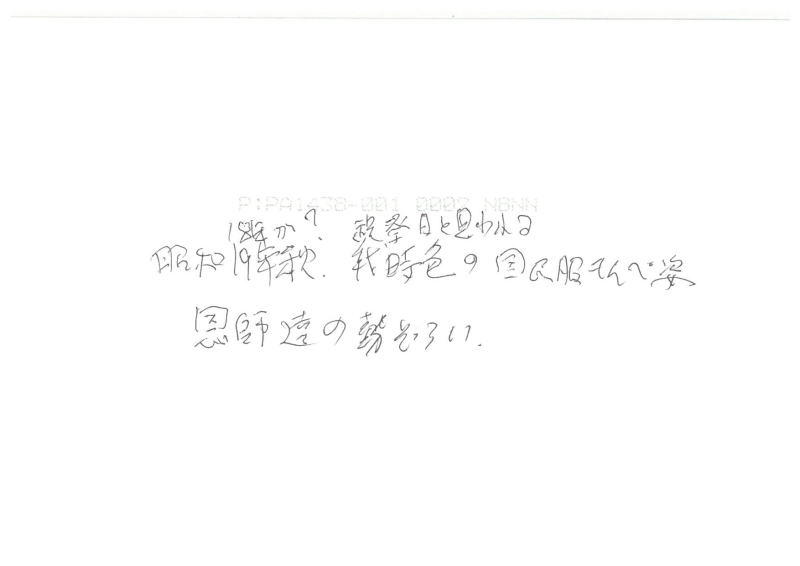 P:PA1438-001 0007 N8NN
18年か? 祝祭日と思われる
昭和19年秋. 戦時色の国民服もんぺ姿
恩師達の勢ぞろい.